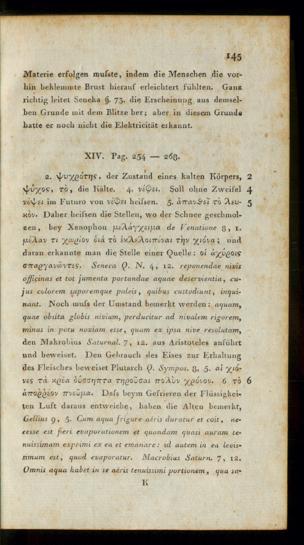 145
Materie erfolgen mufste, indem die Menschen die vor-
hin beklemmte Brust hierauf erleichtert fühlten. Ganz
richtig leitet Seneka §. 73. die Erscheinung aus demsel-
ben Grunde mit dem Blitze her; aber in diesem Grunde
hatte er noch nicht die Elektricität erkannt.
XIV. Pag. 254 — 268.
2. ψυχρότης, der Zustand eines kalten Körpers, 2
ψῦχος, τὸ, die Kälte. 4. νέφει. Soll ohne Zweifel 4
νέψει im Futuro von νέφει heifsen. 5. ἀπανθεῖ τὸ λευ- 5
κόν. Daher heifsen die Stellen, wo der Schnee geschmol-
zen, bey Xenophon μελάγχειμα de Venatione 8, 1.
μέλαν τι χωρίον διὰ τὸ ἐκλελοιπέναι τὴν χιόνα; und
daran erkannte man die Stelle einer Quelle: οἱ ἀχύροις
σπαργανῶντες. Seneca Q. N. 4, 12. reponendae nivis
officinas et tot jumenta portandae aquae deservientia, cu-
jus colorem saporemque paleis, quibus custodiunt, inqui-
nant. Noch mufs der Umstand bemerkt werden: aquam,
quae obsita globis nivium, perducitur ad nivalem rigorem,
minus in potu noxiam esse, quam ex ipsa nive resolutam,
den Makrobius Saturnal. 7, 12. aus Aristoteles anführt
und beweiset. Den Gebrauch des Eises zur Erhaltung
des Fleisches beweiset Plutarch Q. Sympos. 8, 5. αἱ χιό-
νες τὰ κρέα δύσσηπτα τηροῦσαι πολὺν χρόνον. 6 τὸ 6
ἀπόῤῥιον πνεῦμα. Dafs beym Gefrieren der Flüssigkei-
ten Luft daraus entweiche, haben die Alten bemerkt,
Gellius 9, 5. Cum aqua frigore aëris duratur et coit, ne-
cesse est fieri evaporationem et quandam quasi auram te-
nuissimam exprimi ex ea et emanare: id autem in ea levis-
simum est, quod evaporatur. Macrobius Saturn. 7, 12.
Omnis aqua habet in se aëris tenuissimi portionem, qua sa-
K